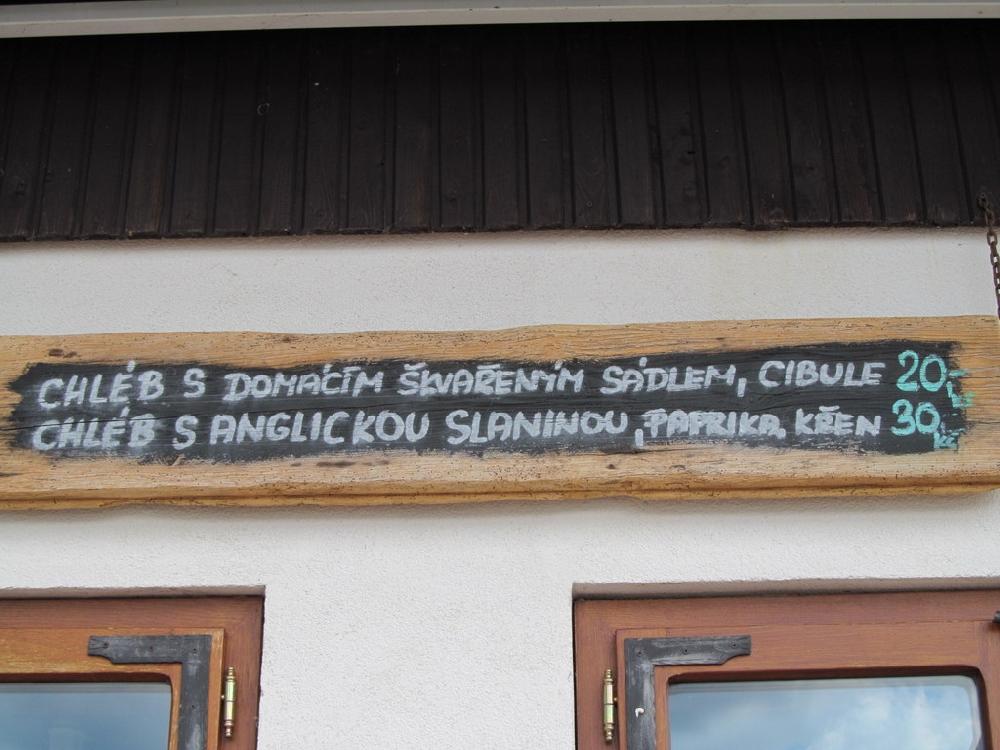 CHLÉB S DOMÁCÍM ŠKVAŘENÝM SÁDLEM, CIBULE 20,- Kč
CHLÉB S ANGLICKOU SLANINOU, PAPRIKA, KŘEN 30 Kč